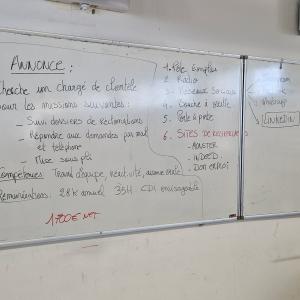 ANNONCE :
cherche un chargé de clientèle
pour les missions suivantes :
- Suivi dossiers de réclamations
- Répondre aux demandes par mail
et téléphone
- Mise sous pli
Compétences : Travail d'équipe, réactivité, aisance orale
Rémunération : 28k annuel 35H CDI envisageable
1700€ NET
1. Pôle Emploi
2. Radio
3. Réseaux Sociaux
4. Bouche à oreille
5. Porte à porte
6. SITES DE RECHERCHES
- MONSTER
- INDEED
- DON EMPLOI
LINKEDIN